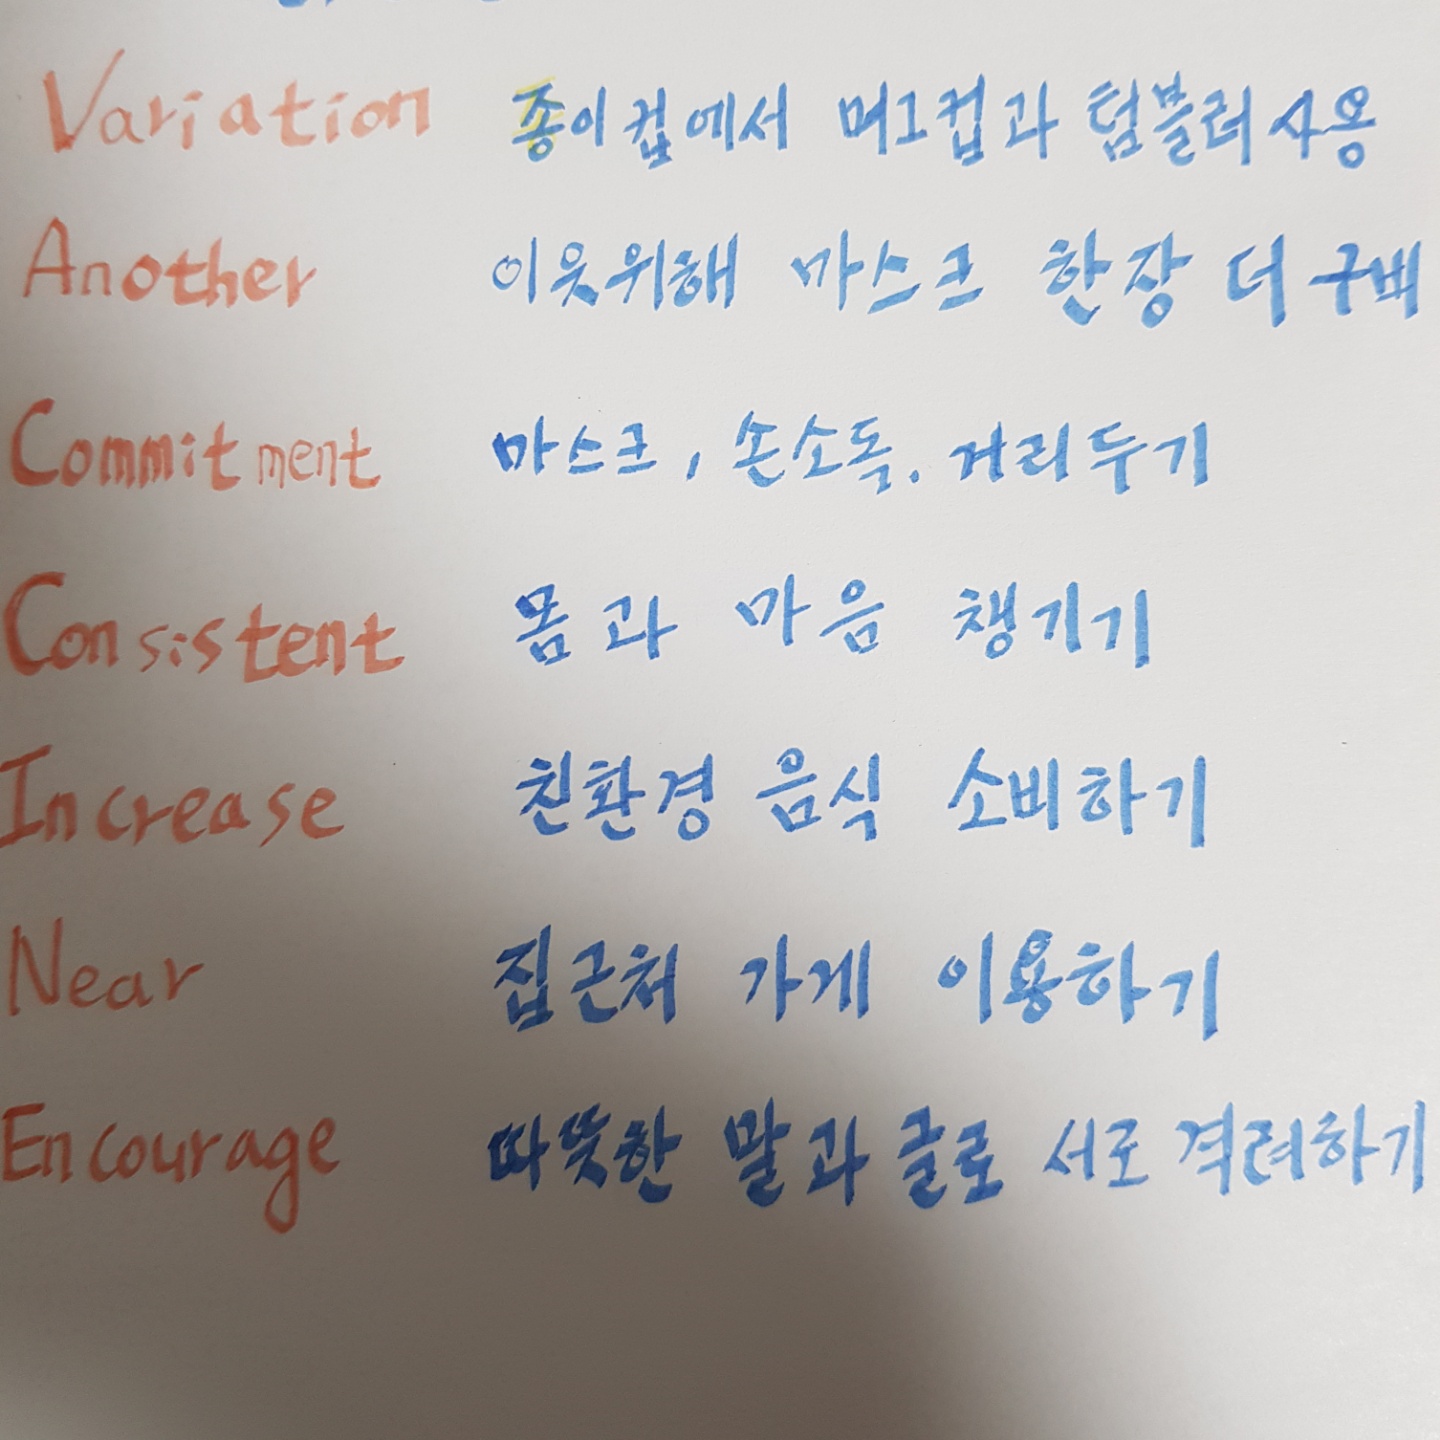 Variation 종이컵에서 머그컵과 텀블러사용
Another 이웃위해 마스크 한장 더 구비
Commitment 마스크, 손소독. 거리두기
Consistent 몸과 마음 챙기기
Increase 친환경 음식 소비하기
Near 집근처 가게 이용하기
Encourage 따뜻한 말과 글로 서로 격려하기